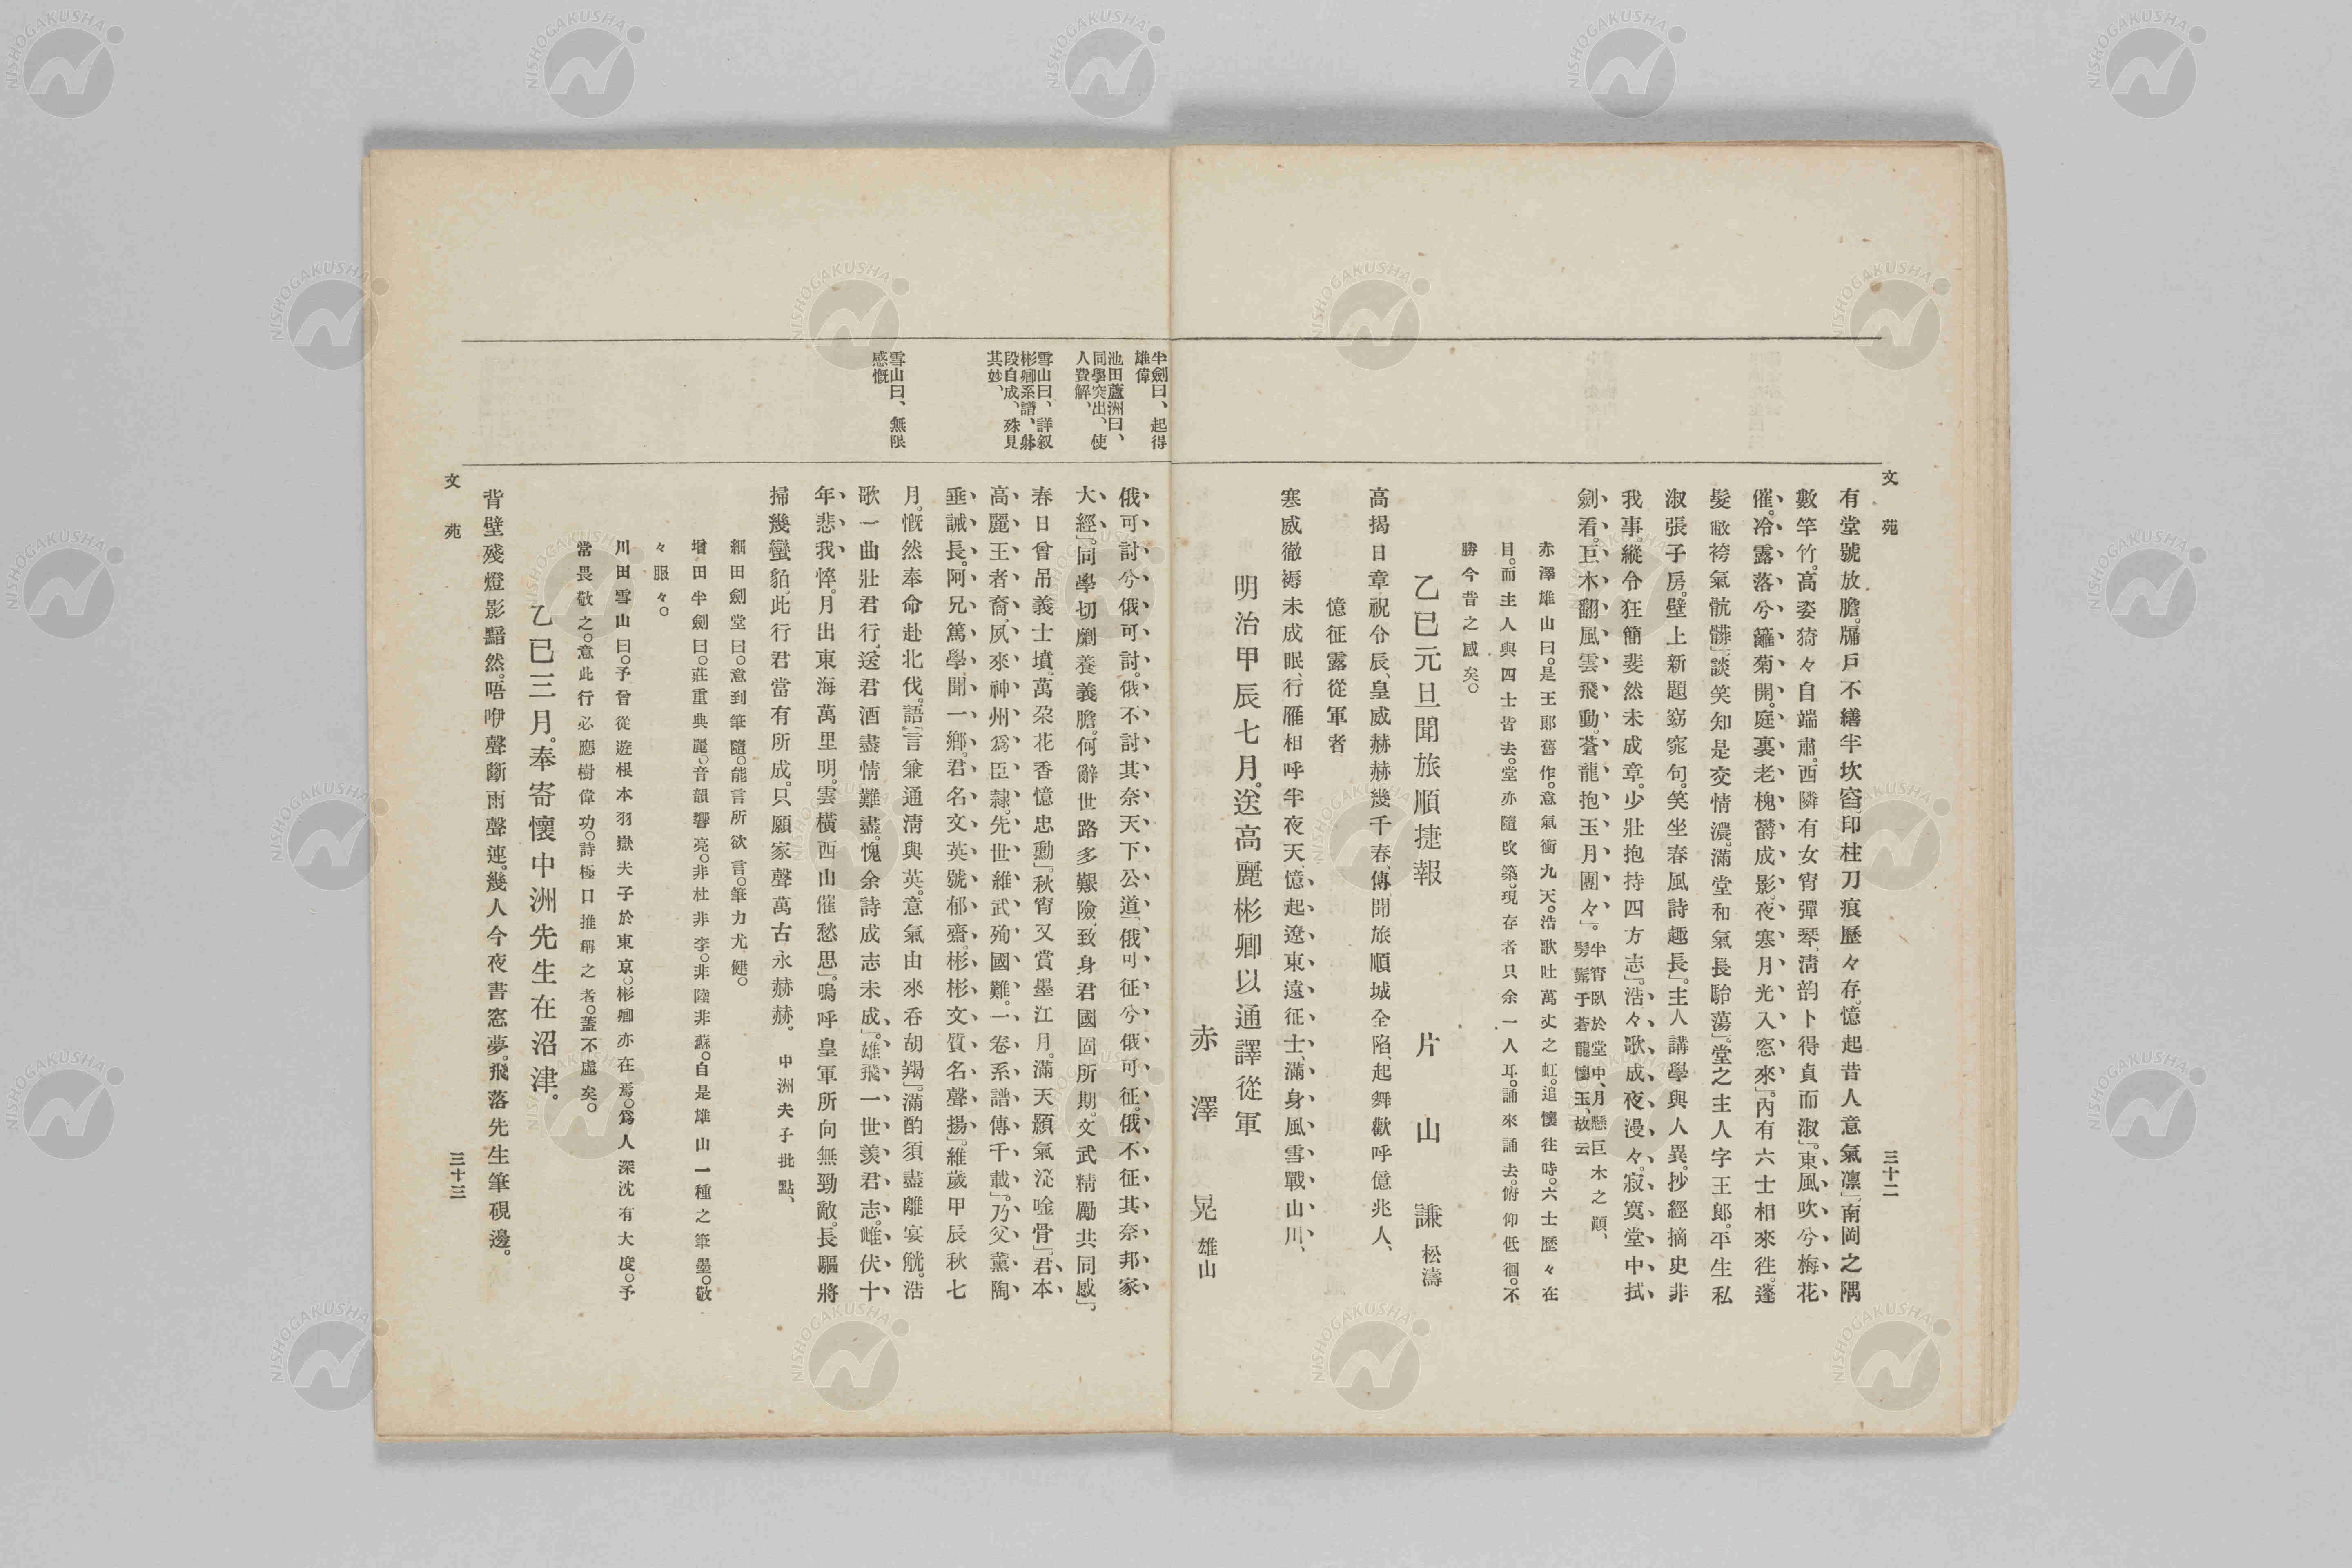 文苑
三十二
有堂號放膽。牖戶不繕半坎窞。印柱刀痕歷々存。憶起昔人意氣凛」南岡之隅
數竿竹。高姿猗々自端肅。西隣有女宵彈琴。淸韵卜得貞而淑」。東風吹兮梅花
催。冷露落兮籬菊開。庭裏老槐欝成影。夜寒月光入窓來」。內有六士相來徃。蓬
髮敝袴氣骯髒」談笑知是交情濃。滿堂和氣長駘蕩」。堂之主人字王郎。平生私
淑張子房。壁上新題窈窕句。笑坐春風詩趣長」。主人講學與人異。抄經摘史非
我事。縱令狂簡斐然未成章。少壯抱持四方志」。浩々歌成夜漫々。寂寞堂中拭
劍看。巨木翻風雲飛動。蒼龍抱玉月團々」。半宵臥於堂中、月懸巨木之顚、
髣髴于蒼龍懷玉、故云
赤澤雄山曰。是王郎舊作。意氣衝九天。浩歌吐萬丈之虹。追懷往時。六士歷々在
目。而主人與四士皆去。堂亦隨改築。現存者只余一人耳。誦來誦去。俯仰低徊。不
勝今昔之感矣。
乙巳元旦聞旅順捷報　片山謙松濤
高揭日章祝令辰、皇威赫赫幾千春、傳聞旅順城全陷、起舞歡呼億兆人、
憶征露從軍者
寒威徹褥未成眠、行雁相呼半夜天、憶起遼東遠征士、滿身風雪戰山川、
明治甲辰七月。送高麗彬卿以通譯從軍
赤澤晃雄山
半劍曰、起得
雄偉
池田蘆洲曰、
同學突出、使
人費解、
雪山曰、詳叙
彬卿系譜、躰
段自成、殊見
其妙、
雪山曰、無限
感慨
俄可討兮俄可討。俄不討其奈天下公道」。俄可征兮俄可征。俄不征其奈邦家
大經」。同學切劘養義膽。何辭世路多艱險。致身君國固所期。文武精勵共同感」。
春日曾吊義士墳。萬朶花香憶忠勳」。秋宵又賞墨江月。滿天顥氣沁唫骨」。君本
高麗王者裔。夙來神州爲臣隷。先世維武殉國難。一卷系譜傳千載」。乃父薰陶
垂誡長。阿兄篤學聞一鄉。君名文英號郁齋。彬彬文質名聲揚」。維歲甲辰秋七
月。慨然奉命赴北伐。語言兼通淸與英。意氣由來呑胡羯」。滿酌須盡離宴觥。浩
歌一曲壯君行。送君酒盡情難盡。愧余詩成志未成」。雄飛一世羨君志。雌伏十
年悲我悴。月出東海萬里明。雲橫西山催愁思」。嗚呼皇軍所向無勁敵。長驅將
掃幾蠻貊。此行君當有所成。只願家聲萬古永赫赫。　中洲夫子批點、
細田劍堂曰。意到筆隨。能言所欲言。筆力尤健。
增田半劍曰。莊重典麗。音韻響亮。非杜非李。非陸非蘇。自是雄山一種之筆墨。敬
々服々。
川田雪山曰。予曾從遊根本羽嶽夫子於東京。彬卿亦在焉。爲人深沈有大度。予
常畏敬之。意此行必應樹偉功。詩極口推稱之者。蓋不虛矣。
乙巳三月。奉寄懷中洲先生在沼津。
背壁殘燈影黯然。唔咿聲斷雨聲連。幾人今夜書窓夢。飛落先生筆硯邊。
文苑
三十三